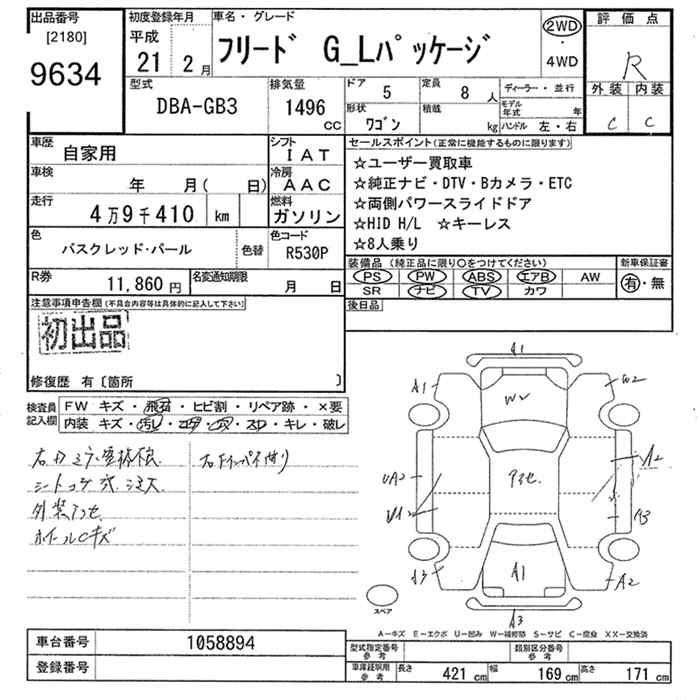 出品番号 初度登録年月 車名・グレード 評価点
[2180] 平成 フリード G_Lパッケージ 2WD・4WD R
9634 21 2月
型式 排気量 ドア 定員 ディーラー・並行 外装 内装
DBA-GB3 1496 cc 5 8人 モデル年式 年 C C
形状 積載
ワゴン kg ハンドル 左・右
車歴 自家用 シフト IAT セールスポイント(正常に機能するものに限ります)
☆ユーザー買取車
車検 年 月( 日) 冷房 AAC ☆純正ナビ・DTV・Bカメラ・ETC
☆両側パワースライドドア
走行 4万9千410 km 燃料 ガソリン ☆HID H/L ☆キーレス
☆8人乗り
色 バスクレッド・パール 色替 色コード R530P
装備品(純正品に限り○をつけてください) 新車保証書
PS PW ABS エアB AW 有・無
SR ナビ TV カワ
R券 11,860円 名変通知期限 月 日
後日品
注意事項申告欄(不具合内容等は具体的に記入して下さい)
初出品
修復歴 有〔箇所 〕
検査員記入欄 FW キズ・飛石・ヒビ割・リペア跡・×要
内装 キズ・汚レ・コゲ・穴・スレ・キレ・破レ
外装アセ
ホイルCキズ
A1
A1 W2
W
アセ
UA2 A2
UA2 A3
A1
A3 A2
A3
スペア
A-キズ E-エクボ U-凹み W-補修跡 S-サビ C-腐食 XX-交換済
車台番号 1058894
登録番号
型式指定番号 参考 類別区分番号 参考
車庫証明用 参考 長さ 421 cm 幅 169 cm 高さ 171 cm